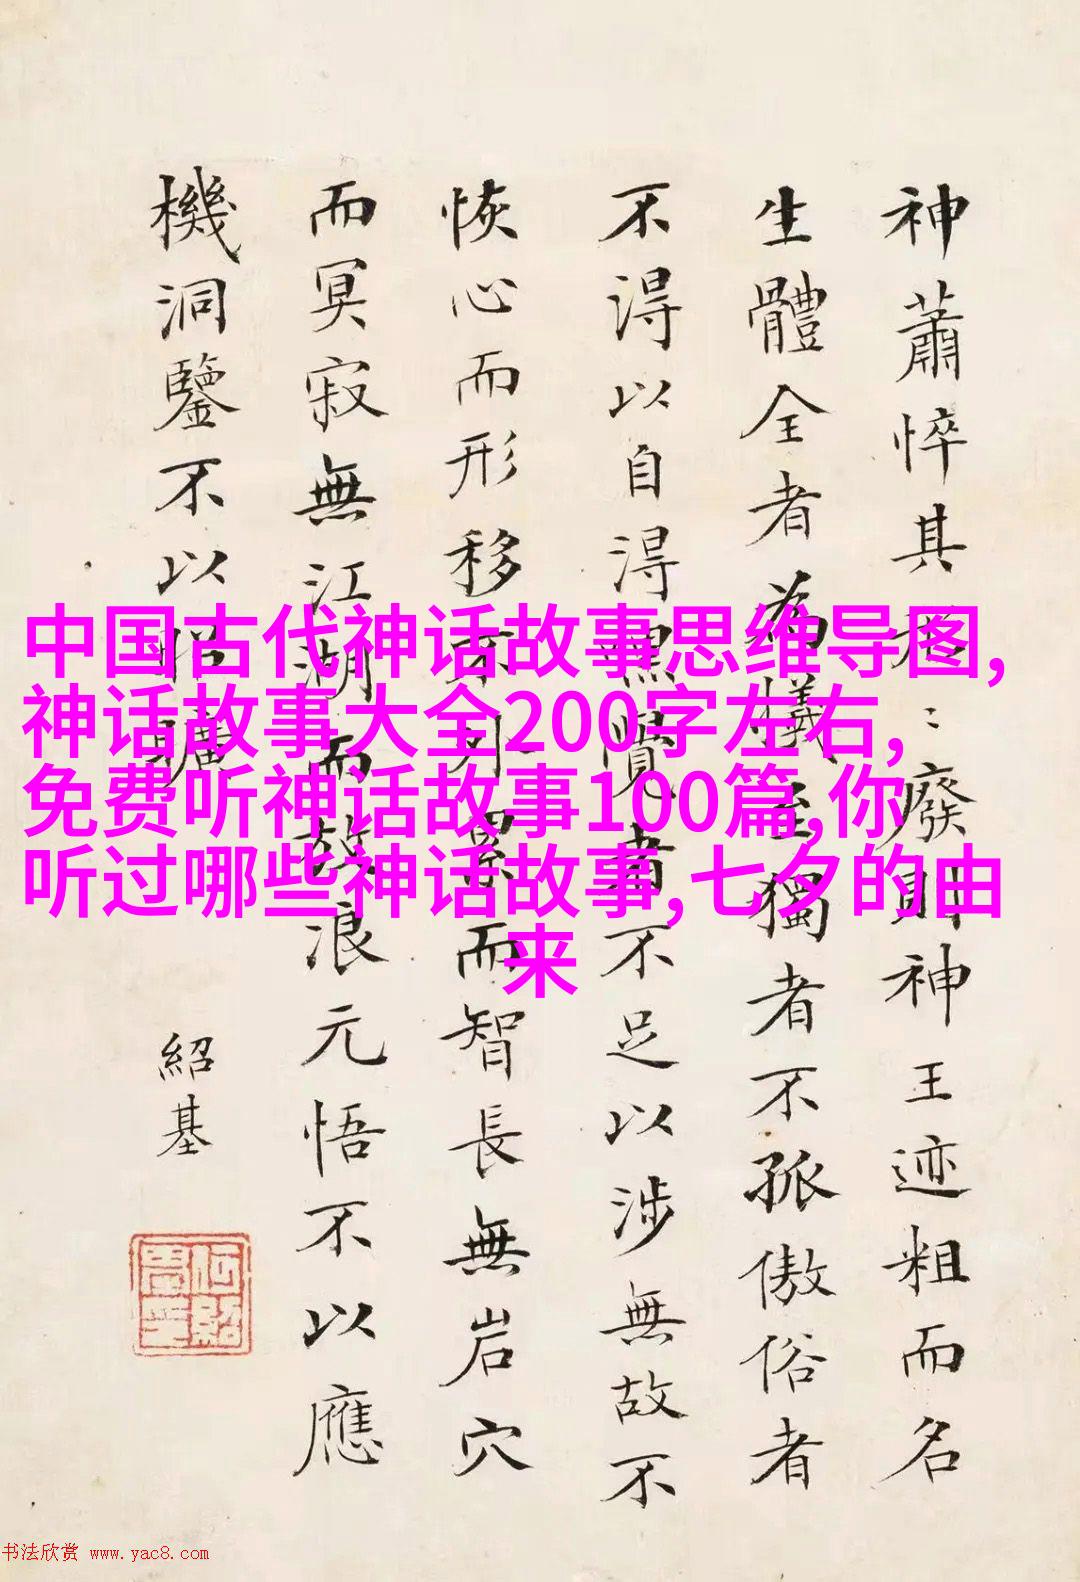 神蕭悴其廢則神王迹粗而名
生體全者為犧至獨者不孤傲俗者
不得以自得嘿覺者不足以涉無故不
恢心而形移月累而智長無岩穴
而冥寂無江湖而放浪元悟不以應
機洞鑒不以昭曠
紹基
中国古代神话故事思维导图,
神话故事大全200字左右,
免费听神话故事100篇,你
听过哪些神话故事,七夕的由
来
书法欣赏 www.yac8.com